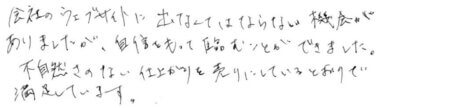 会社のウェブサイトに出なくてはならない機会が
ありましたが、自信をもって臨むことができました。
不自然さのない仕上がりを売りにしているとおりで
満足しています。